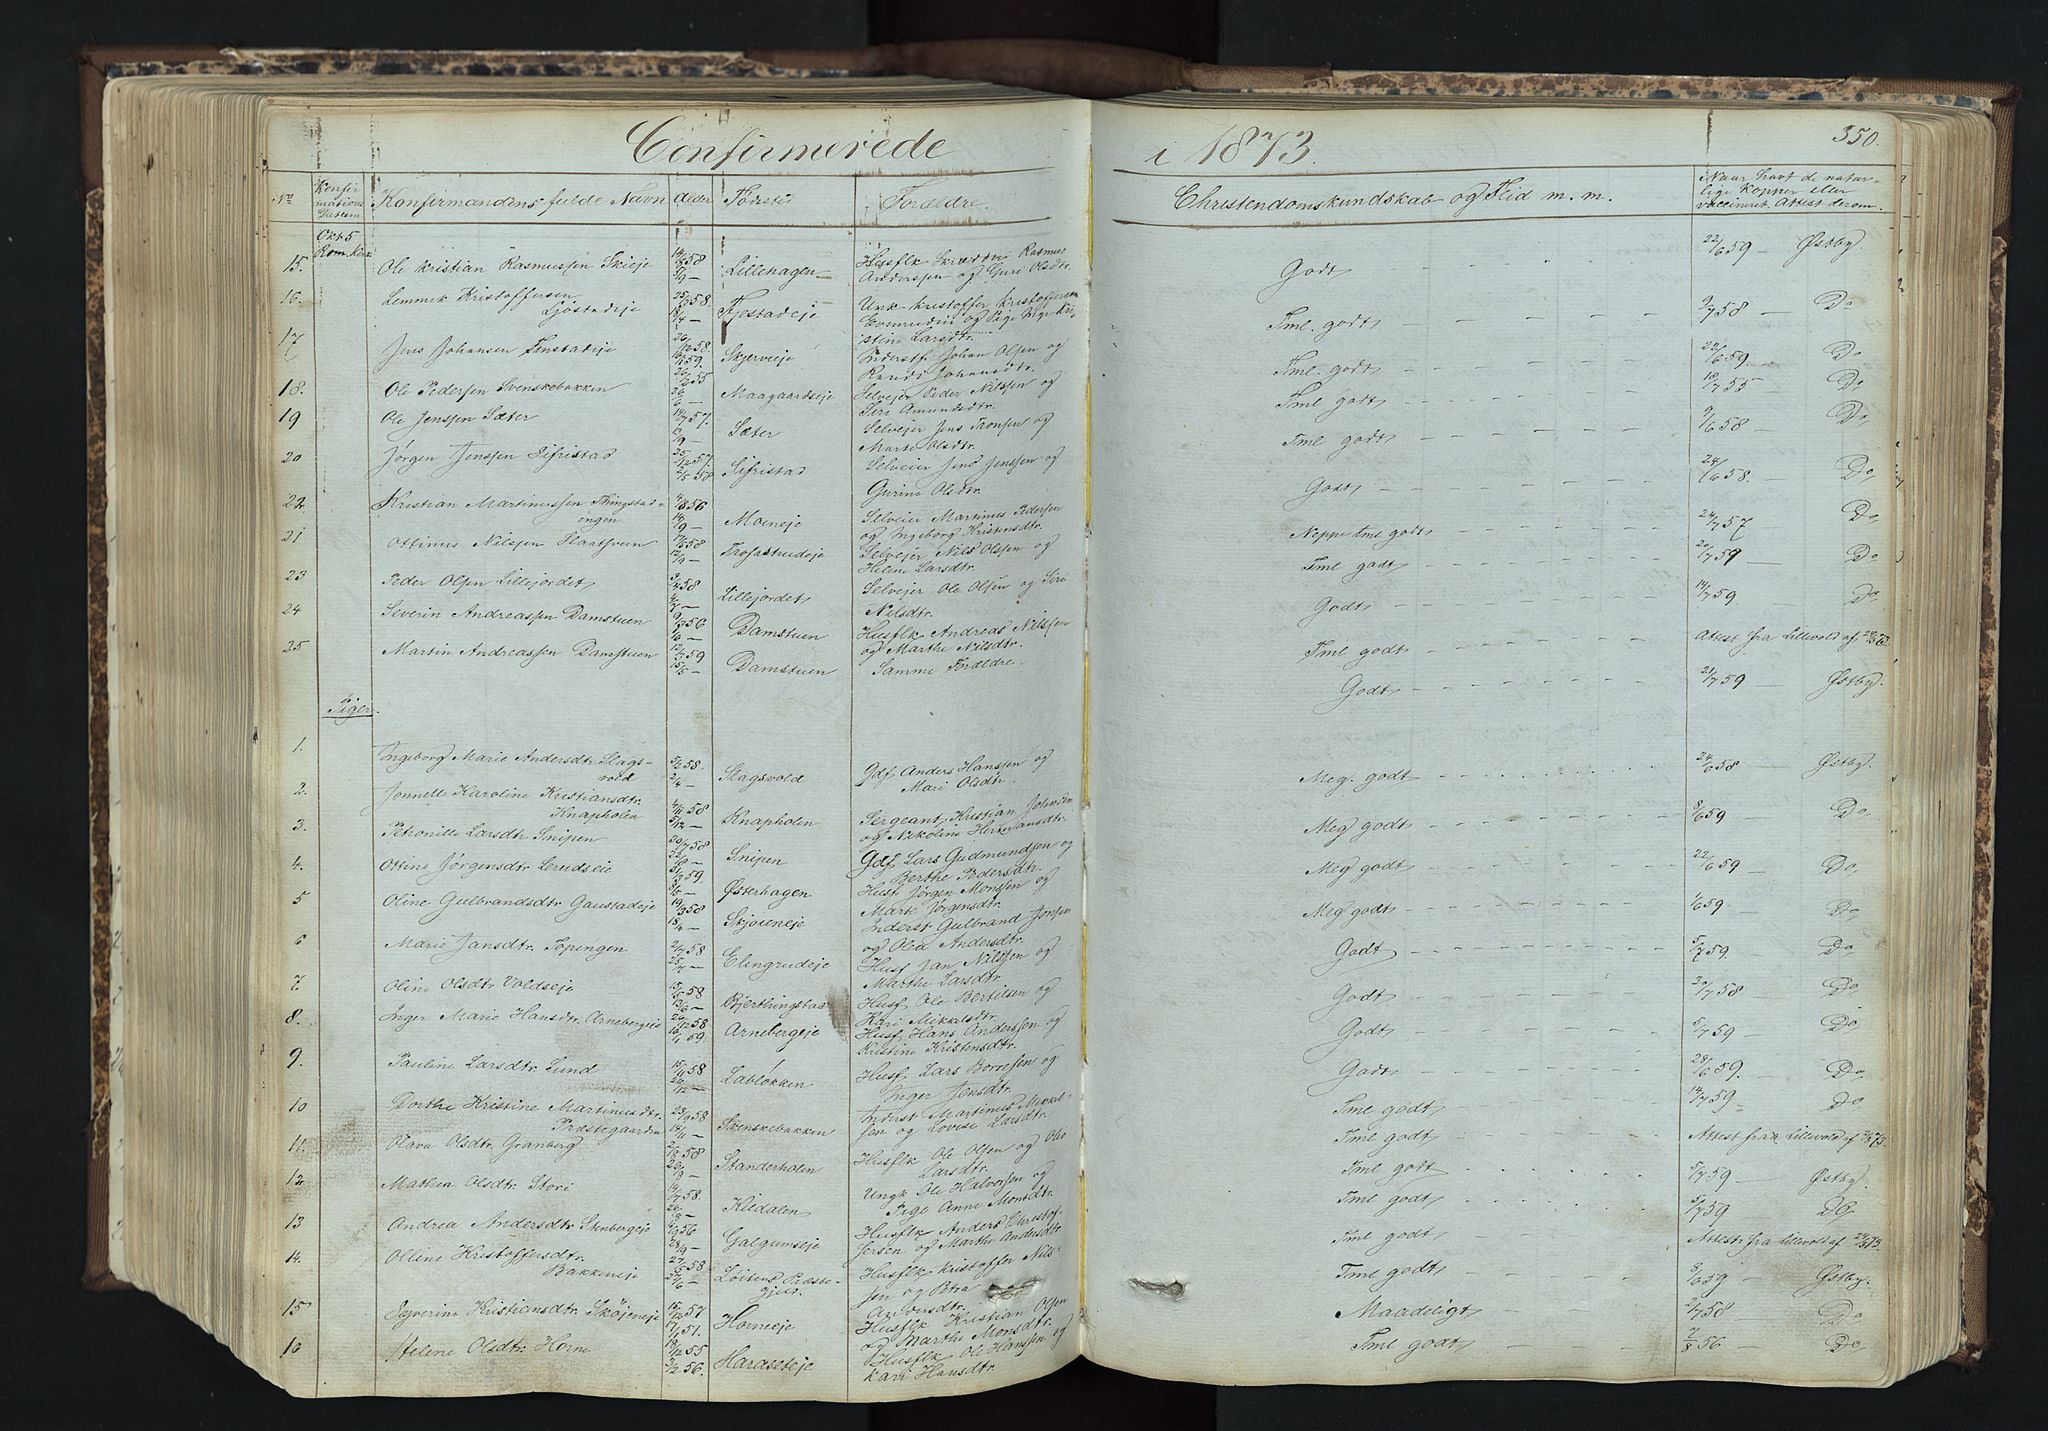 Confirmerede i 1873. 350.
No Konfirmations Datum Konfirmandens fulde Navn Alder Fødested Forældre. Christendomskundskab og Flid m. m. Naar havt de naturlige Kopper eller vaccineret, Attest derom.
Okt 5
15. Ole Kristian Rasmussen Skieje Lillehagen Husflk Skrædder Rasmus Anderssen og Guri Olsdtr. Godt 22/6 59 — Østby.
16. Lemmik Kristoffersen Ljøstadeje Fjestadeje Ungk Kristoffer Kristoffersen og Pige Inge Kristine Larsdtr. Tml. godt 9/7 58 Do
17 Jens Johansen Finstadeje Skjerveeje Inderstf. Johan Olsen og Randi Johansdtr. Tml. godt 22/6 59. Do
18. Ole Pedersen Svenskebakken Maagaardseje Selvejer Peder Nilssen og Siri Amundsdtr. Tml godt 18/7 55 Do
19 Ole Jenssen Sæter 14/7 57. Sæter Selvejer Jens Tronsen og Marte Olsdtr. Tml godt 9/6 58 Do
20 Jørgen Jenssen Sifristad 25/12 57. Sifristad Selveier Jens Jenssen og Gurine Olsdtr. Godt 24/6 58. Do
22 Kristian Martinussen Thingstadengen Moeneje Selveier Martinus Pedersen og Ingeborg Kristensdtr. Neppe tml godt 24/7 57 Do
21 Ottinus Nilsjen Slaatsveen Trosastrudeje Selvejer Nils Olssen og Helene Larsdtr. Tml godt 20/7 59 Do
23 Peder Olsen Lillejordet Lillejordet Selvejer Ole Olsen og Siri Nilsdtr. Godt 14/7 59 Do
24 Severin Andreassen Damstuen Damstuen Husflk Andreas Nilssen og Marthe Nilsdtr. Tml godt Attest fra Lillevold af
25 Martin Andreassen Damstuen 12/3 59 Damstuen Samme Forældre. Godt 21/7 59 — Østby.
Piger.
1. Ingeborg Marie Andersdtr. Slagsvold 3/2 58. Slagsvold Gdf. Anders Hanssen og Mari Olsdtr. Meg. godt 24/6 58 Østby.
2. Jonnette Karoline Kristiansdtr. Knapholen Knapholen Sergeant Kristian Johnsen og Nikoline Hermansdtr. Meg godt 8/6 59 Do
3. Petronille Larsdtr Snipen Snipen Gdf. Lars Gudmundsen og Berthe Pedersdtr. Meg godt 22/6 59 Do
4. Ottine Jørgensdtr. Lerudseje Østerhagen Husf Jørgen Monssen og Marte Jørgensdtr. Meg godt 1/6 59 Do
5 Oline Gulbrandsdtr Gaustadeje 19/3 58 Skjøreneje Inderst Gulbrand Jonsen og Olea Andersdtr. Godt 5/7 59. Do
6 Marie Jansdtr. Sopengen 2/7 58 Elingrudeje Husf Jan Nilssen og Marthe Larsdtr. Godt 20/7 58 Do
7 Oline Olsdtr Voldseje 15/5 58 Bjerthingstad Husf. Ole Bertilsen og Kari Mikkelsdtr. Godt 5/7 59 Do
8. Inger Marie Hansdtr. Arnebergeje 26/12 58 Arnebergeje Husf Hans Anderssen og Kristine Kristensdtr. Godt 28/6 59. Do
9. Pauline Larsdtr. Lund 15/11 58 Labløkken Husf Lars Borresen og Inger Jensdtr. Tml godt 14/7 59 Do
10 Dorthe Kristine Martinusdtr. Præstegaarden 23/9 58 Skenskebakken Inderst Martinus Mikkelsen og Lovise Larsdtr. Tml godt Attest fra Lillevold af
11. Olava Olsdtr. Granberg Standerholen Husflk Ole Olsen og Olea Larsdtr. Tml godt 5/7 59 — Østby.
12 Mathea Olsdtr. Stori Kildalen Ungk Ole Halvorsen og Pige Anne Monsdtr. Tml godt 5/7 59 Do
13 Andrea Andersdtr Galgumseje Husflk Anders Christofersen og Marthe Andersdtr Tml godt Attest fra Lillevold af
14. Olline Kristoffersdtr. Bakkeneje 27/5 58 Løitens Præstegjæld. Husflk Kristoffer Nilssen og Petra Andersdtr. Tml godt 8/6 59 Østby.
15 Syverine Kristiansdtr. Skøjeneje 15/12 57 Horneeje Husflk Kristian Olsen og Marthe Monsdtr. Maadeligt 2/7 58 Do
16 Helene Olsdtr. Horne 18/12 55 Haraseteje Husflk Ole Hanssen og Kari Hansdtr. Tml godt 2/8 56 Do